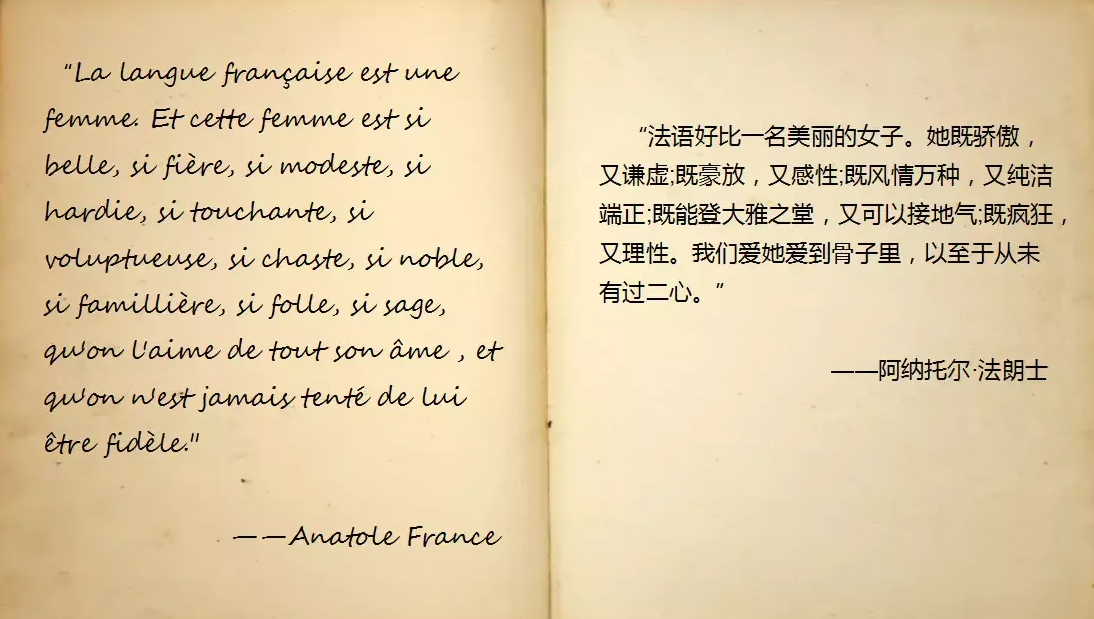 “La langue française est une
femme. Et cette femme est si
belle, si fière, si modeste, si
hardie, si touchante, si
voluptueuse, si chaste, si noble,
si famillière, si folle, si sage,
qu'on l'aime de tout son âme , et
qu'on n'est jamais tenté de lui
être fidèle."
——Anatole France
“法语好比一名美丽的女子。她既骄傲，
又谦虚;既豪放，又感性;既风情万种，又纯洁
端正;既能登大雅之堂，又可以接地气;既疯狂，
又理性。我们爱她爱到骨子里，以至于从未
有过二心。”
——阿纳托尔·法朗士